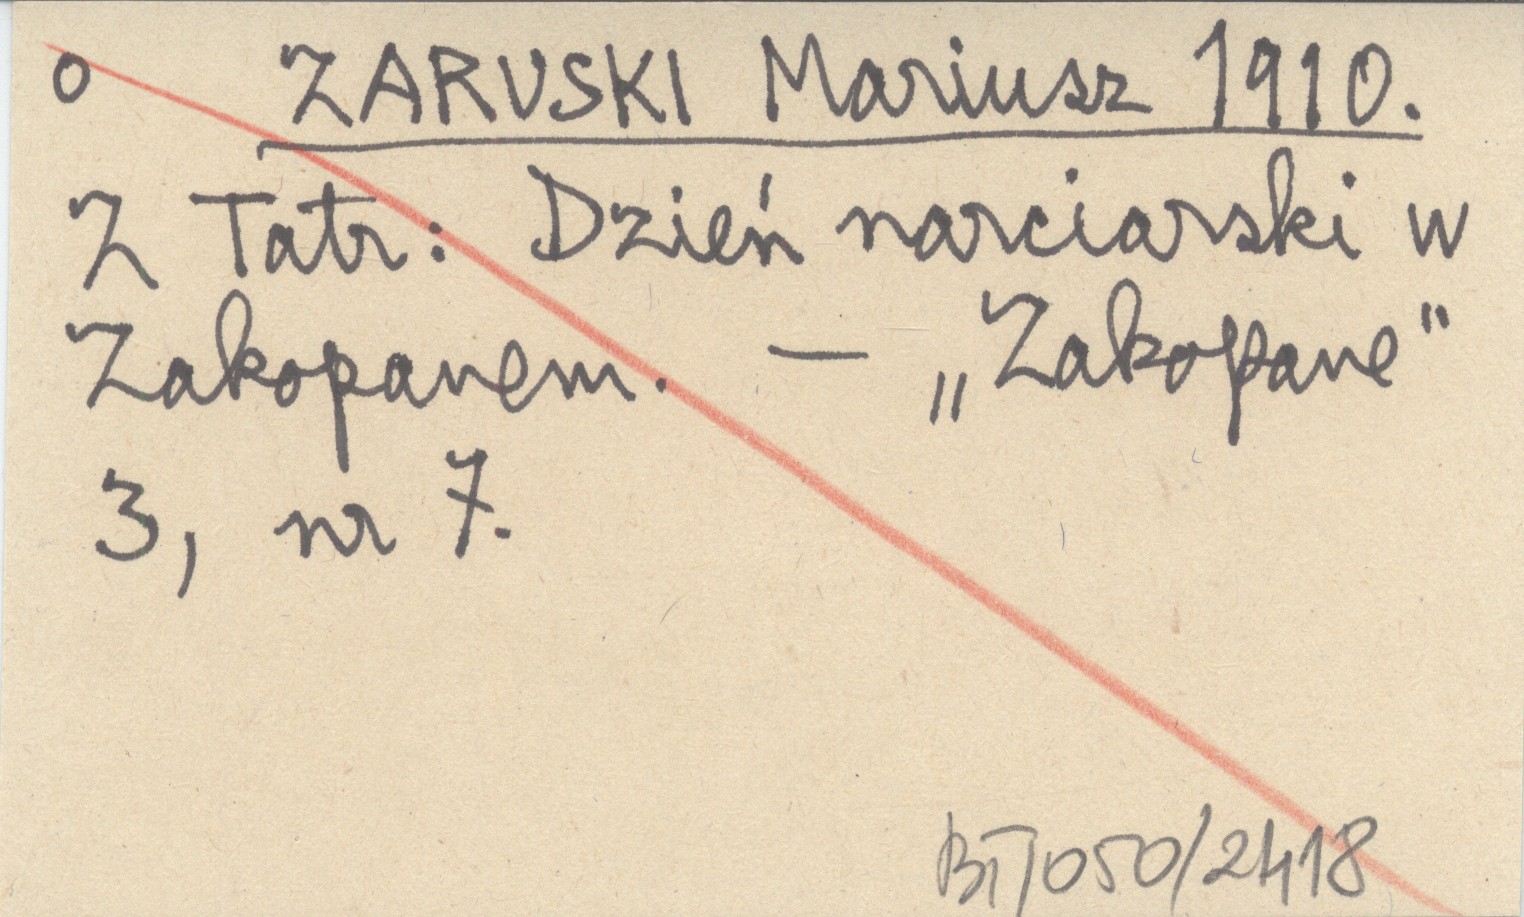 o ZARUSKI Mariusz 1910.
Z Tatr: Dzień narciarski w
Zakopanem. — „Zakopane"
3, nr 7.
BT/050/2418